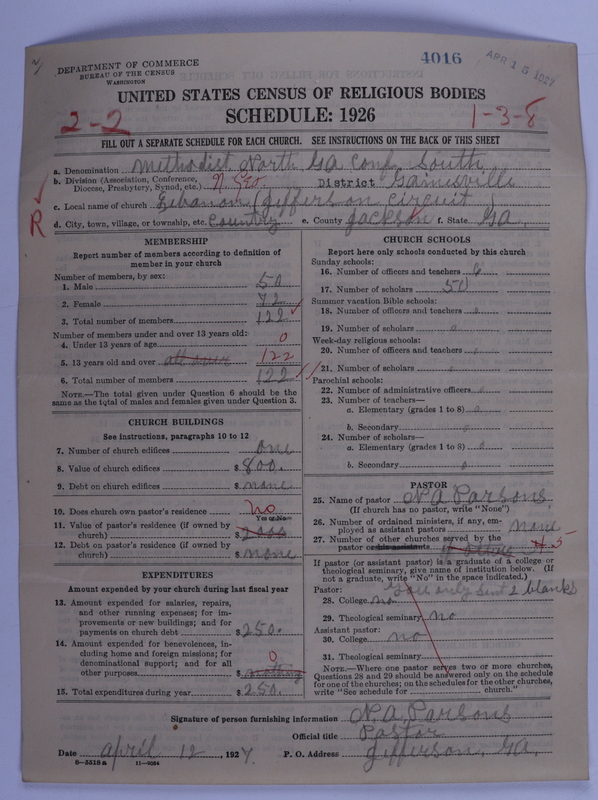 4016
APR 15 1927
DEPARTMENT OF COMMERCE
BUREAU OF THE CENSUS
WASHINGTON
UNITED STATES CENSUS OF RELIGIOUS BODIES
SCHEDULE: 1926
2-2
1-3-8
FILL OUT A SEPARATE SCHEDULE FOR EACH CHURCH. SEE INSTRUCTIONS ON THE BACK OF THIS SHEET
R
a. Denomination Methodist North Ga Conf South
b. Division (Association, Conference, Diocese, Presbytery, Synod, etc.) N. Geo. District Gainesville
c. Local name of church Lebanon (Jefferson circuit)
d. City, town, village, or township, etc. Country e. County Jackson f. State Ga.
MEMBERSHIP
Report number of members according to definition of
member in your church
Number of members, by sex:
1. Male 50
2. Female 72
3. Total number of members 122
Number of members under and over 13 years old:
4. Under 13 years of age 0
5. 13 years old and over all over 122
6. Total number of members 122
NOTE.—The total given under Question 6 should be the
same as the total of males and females given under Question 3.
CHURCH BUILDINGS
See instructions, paragraphs 10 to 12
7. Number of church edifices One
8. Value of church edifices $ 800.
9. Debt on church edifices $ none
10. Does church own pastor's residence No
Yes or No
11. Value of pastor's residence (if owned by
church) $
12. Debt on pastor's residence (if owned by
church) $ none
EXPENDITURES
Amount expended by your church during last fiscal year
13. Amount expended for salaries, repairs,
and other running expenses; for im-
provements or new buildings; and for
payments on church debt $ 250.
14. Amount expended for benevolences, in-
cluding home and foreign missions; for
denominational support; and for all
other purposes $ nothing 0
15. Total expenditures during year $ 250.
CHURCH SCHOOLS
Report here only schools conducted by this church
Sunday schools:
16. Number of officers and teachers 6
17. Number of scholars 50
Summer vacation Bible schools:
18. Number of officers and teachers 0
19. Number of scholars 0
Week-day religious schools:
20. Number of officers and teachers 0
21. Number of scholars 0
Parochial schools:
22. Number of administrative officers 0
23. Number of teachers—
a. Elementary (grades 1 to 8) 0
b. Secondary 0
24. Number of scholars—
a. Elementary (grades 1 to 8) 0
b. Secondary 0
PASTOR
25. Name of pastor N. A. Parsons
(If church has no pastor, write "None")
26. Number of ordained ministers, if any, em-
ployed as assistant pastors none
27. Number of other churches served by the
pastor or his assistants 5
If pastor (or assistant pastor) is a graduate of a college or
theological seminary, give name of institution below. (If
not a graduate, write "No" in the space indicated.)
Pastor: You only sent 2 blanks
28. College no
29. Theological seminary no
Assistant pastor:
30. College no
31. Theological seminary
NOTE.—Where one pastor serves two or more churches,
Questions 28 and 29 should be answered only on the schedule
for one of the churches; on the schedules for the other churches,
write "See schedule for church."
Signature of person furnishing information N. A. Parsons
Official title Pastor
Date April 12, 1927 P. O. Address Jefferson, Ga.
8-5518a 11-9064